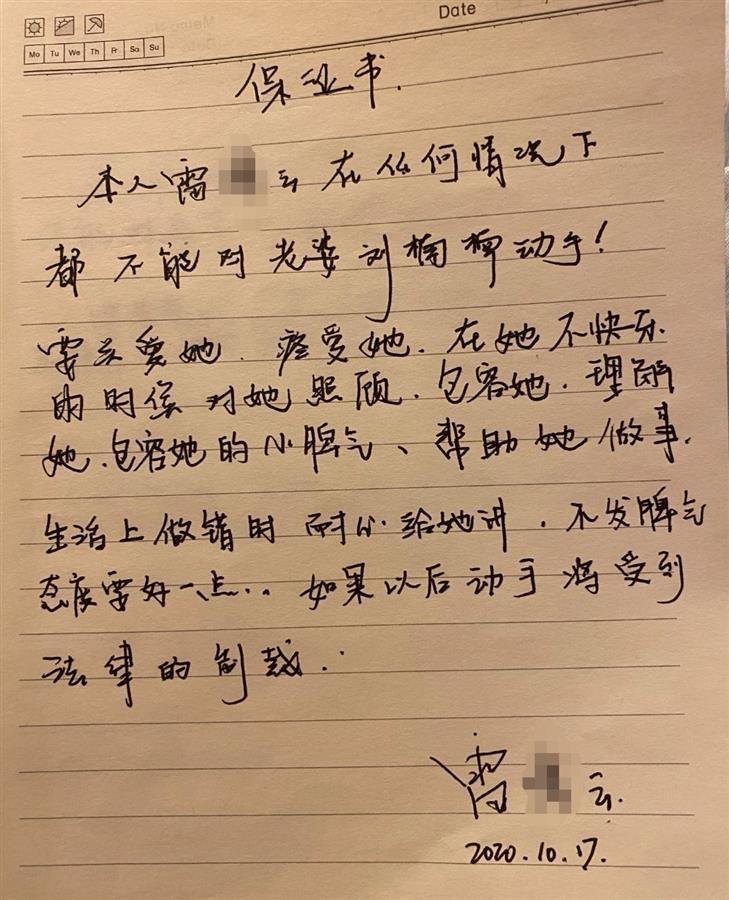 Date
Mo Tu We Th Fr Sa Su
保证书.
本人雷 云在任何情况下
都不能对老婆刘楠楠动手!
要关爱她.疼爱她.在她不快乐
的时侯对她照顾.包容她.理解
她.包容她的小脾气、帮助她做事.
生活上做错时耐心给她讲.不发脾气
态度要好一点.. 如果以后动手将受到
法律的制裁..
雷 云.
2020.10.17.